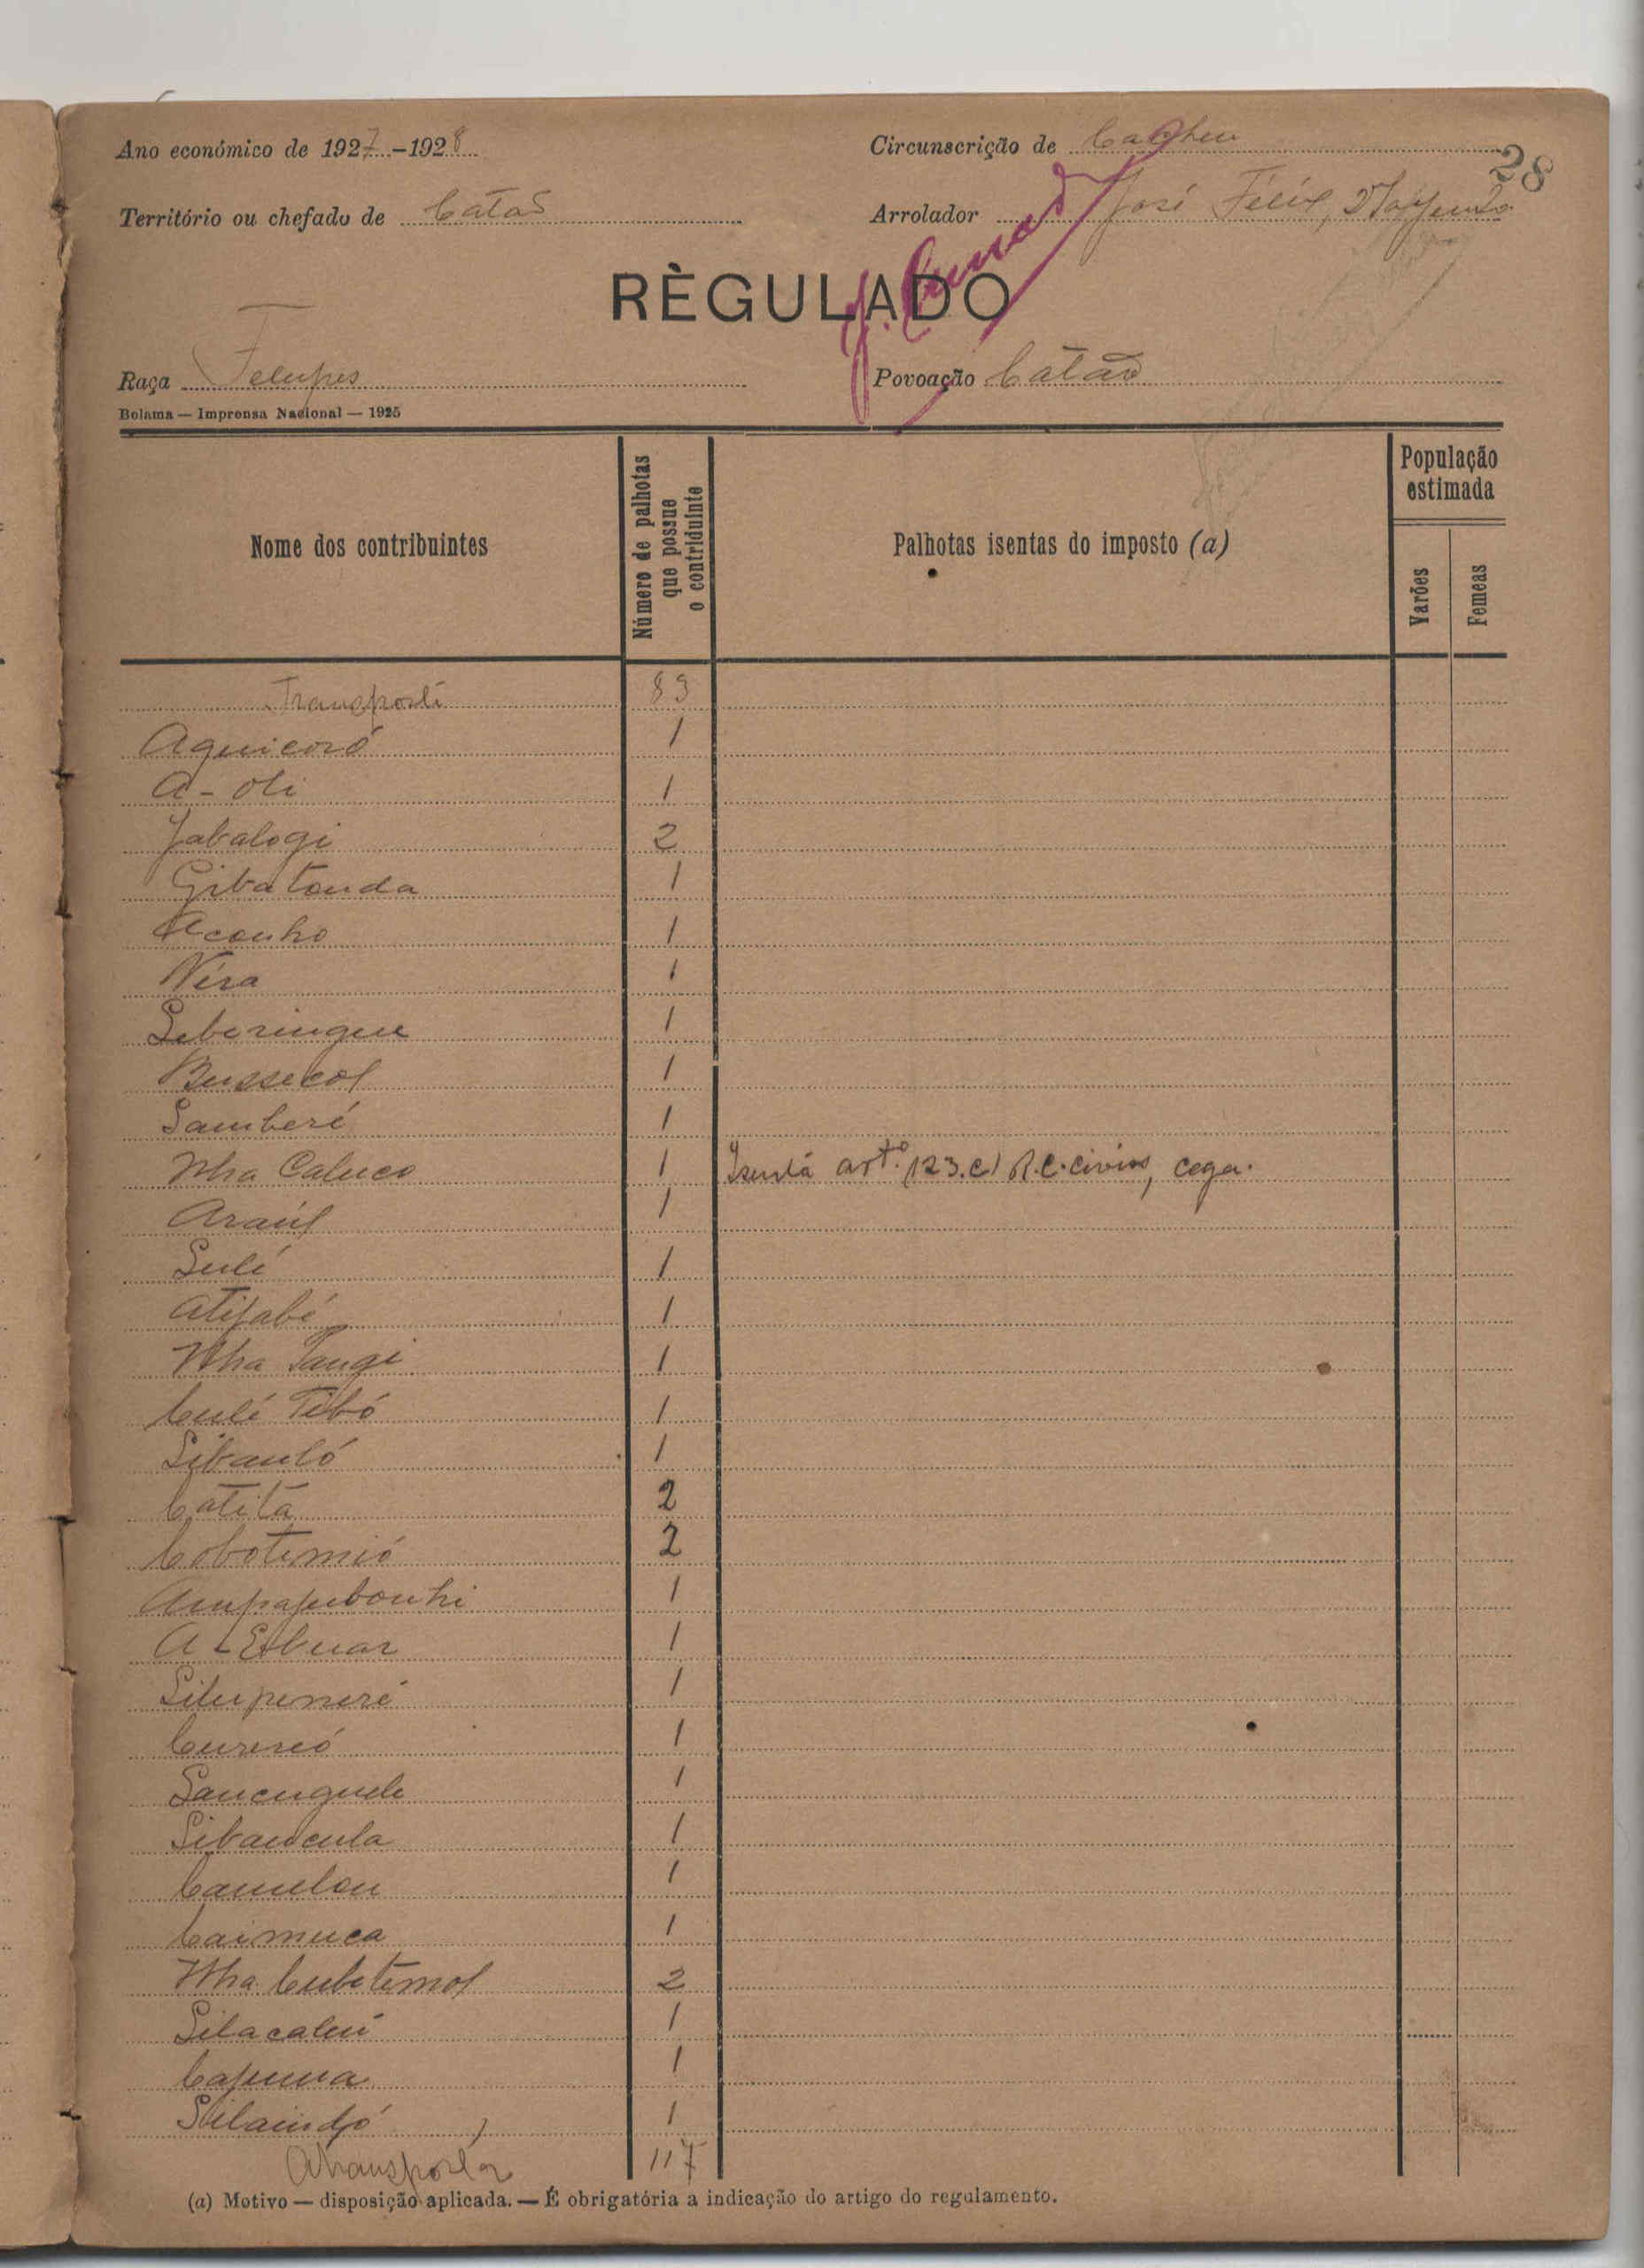 Ano económico de 1927-1928
Circunscrição de Cacheu
28
Território ou chefado de Catão
Arrolador José Félix,
RÈGULADO
Raça Felupes
Povoação Catão
Bolama — Imprensa Nacional — 1925
Nome dos contribuintes
Número de palhotas que possue o contriduinte
Palhotas isentas do imposto (a)
População estimada
Varões
Femeas
Transporte 83
Aquicoró 1
A-oli 1
Jabalogi 2
Gibatonda 1
Aconho 1
Nira 1
Seberingue 1
Bussecol 1
Samberé 1
Nha Caluco 1 Isenta artº. 123.c) R.C.civis, cega.
Araúl 1
Sulé 1
Atijabé 1
Nha Sangi 1
Culé Tibó 1
Sibauló 1
Catita 2
Cobotemió 2
Ampapubonhi 1
A-Ebuar 1
Silupeneré 1
1
Sancuguele 1
Sibancula 1
Camulon 1
Caimuca 1
Nha Cubetemol 2
Silacalui 1
Capuma 1
1
A transportar 117
(a) Motivo — disposição aplicada. — É obrigatória a indicação do artigo do regulamento.